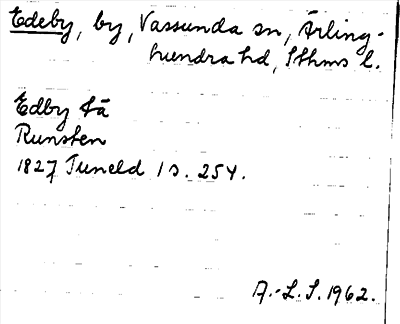 Edeby, by, Vassunda sn, Ärling-
hundra hd, Sthms l.
Edby
Runsten
1827 Tuneld 1 s. 254.
A.-L.S. 1962.